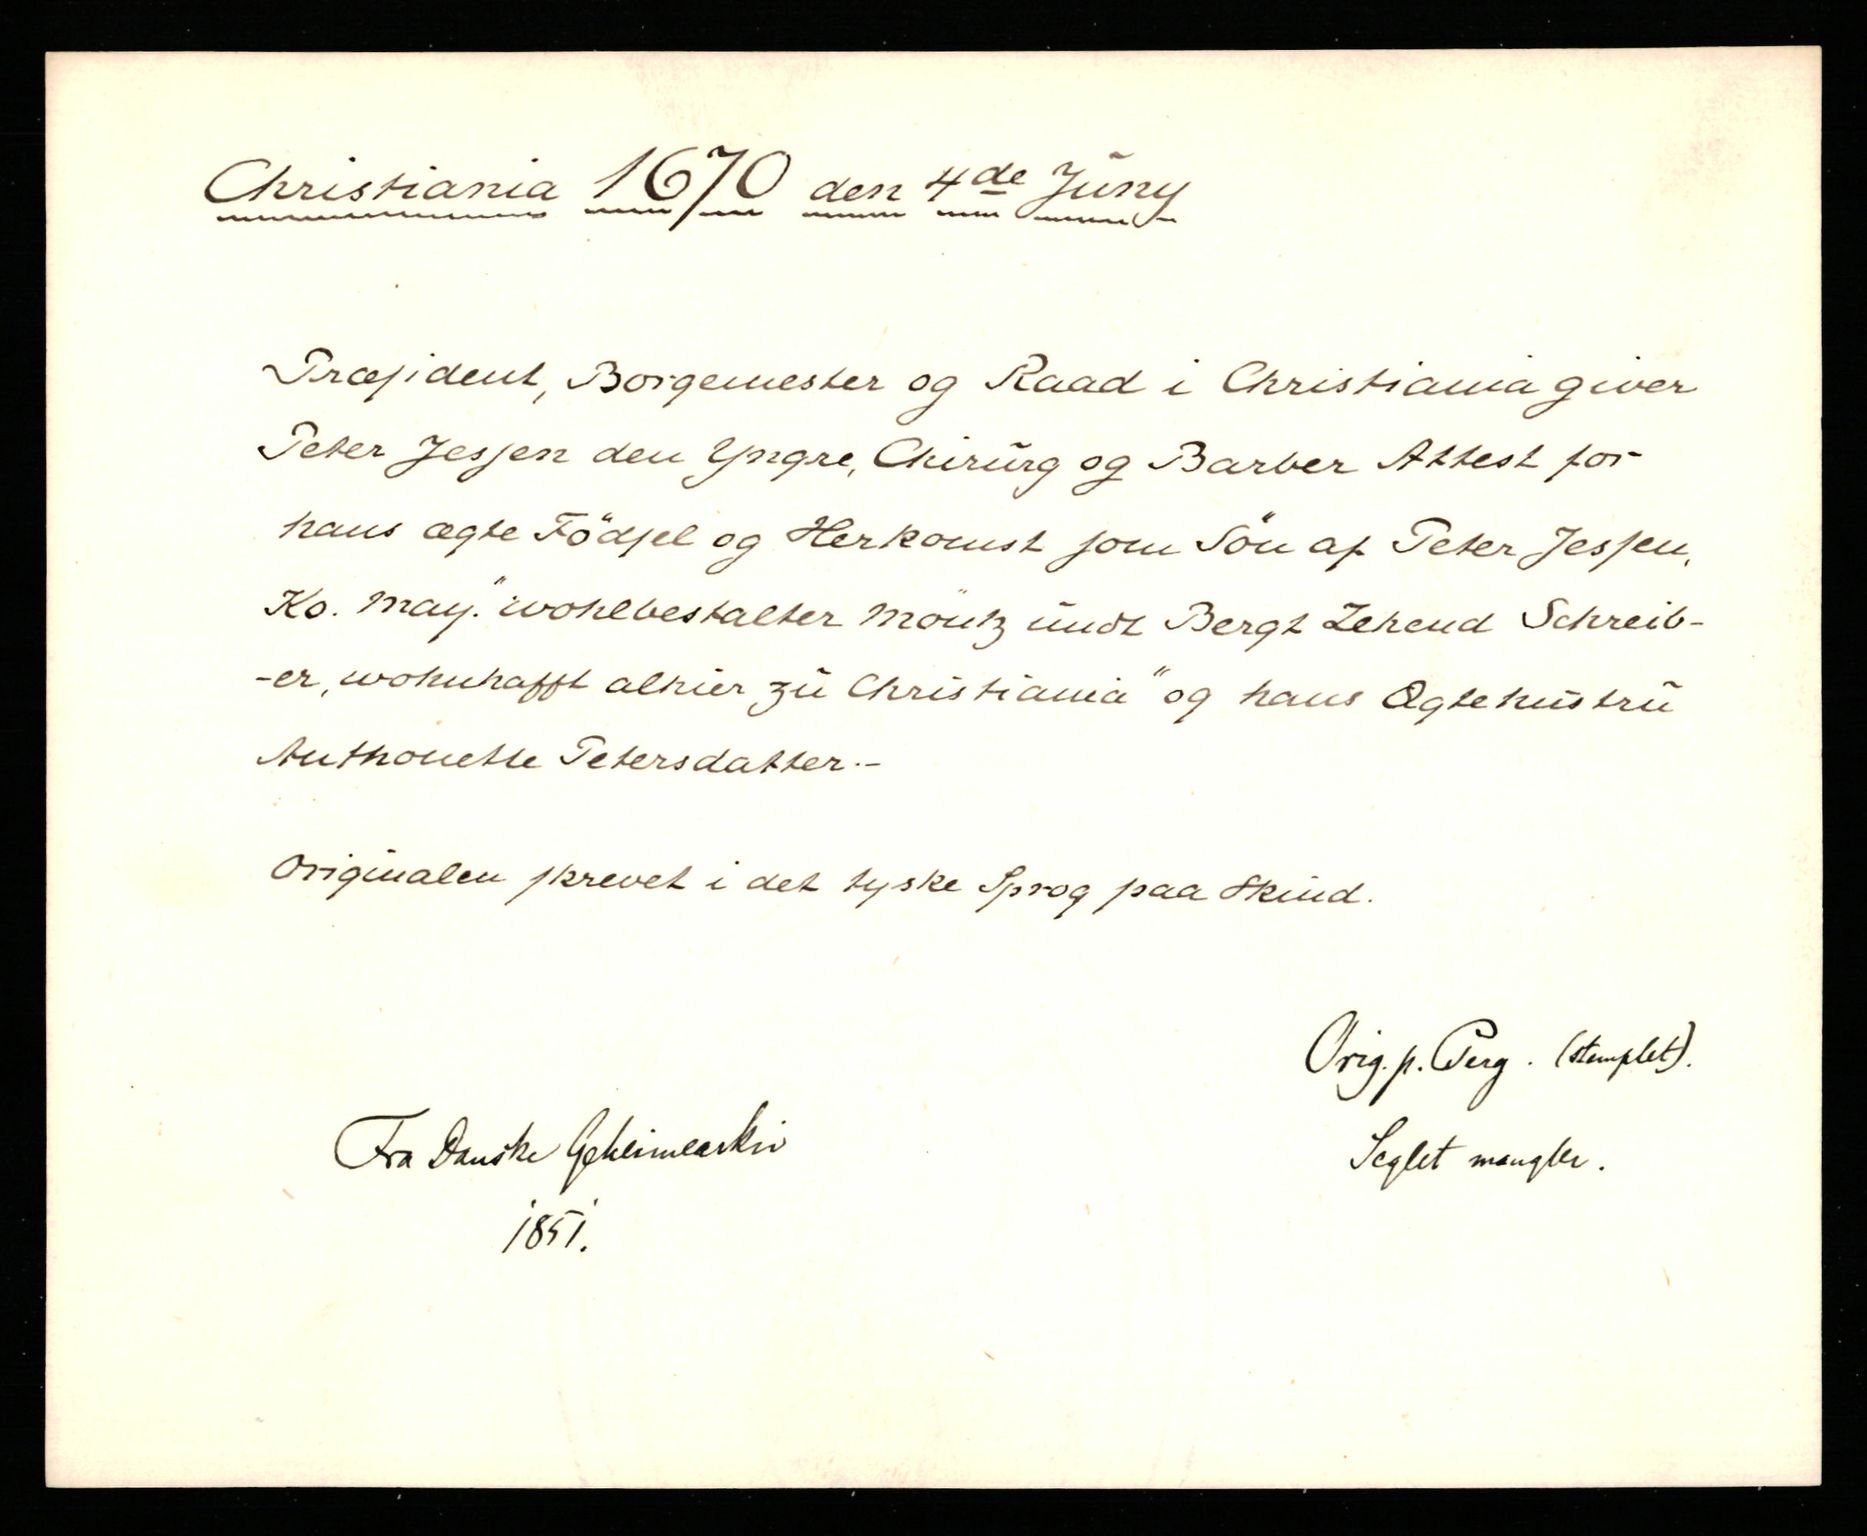 Christiania 1670 den 4de Juny
Præsident, Borgemester og Raad i Christiania giver
Peter Jessen den Yngre, Chirurg og Barber Attest for
hans ægte Födsel og Herkomst som Sön af Peter Jessen,
Ko. May. "wohlbestalter Möntz undt Bergt Zehend Schreib-
-er, wohnhafft alhier zu Christiania" og hans Ægtehustru
Anthonette Petersdatter.-
Originalen skrevet i det tyske Sprog paa Skind.
Orig. p. Perg. (stemplet).
Seglet mangler.
Fra Danske Geheimearkiv
1851.